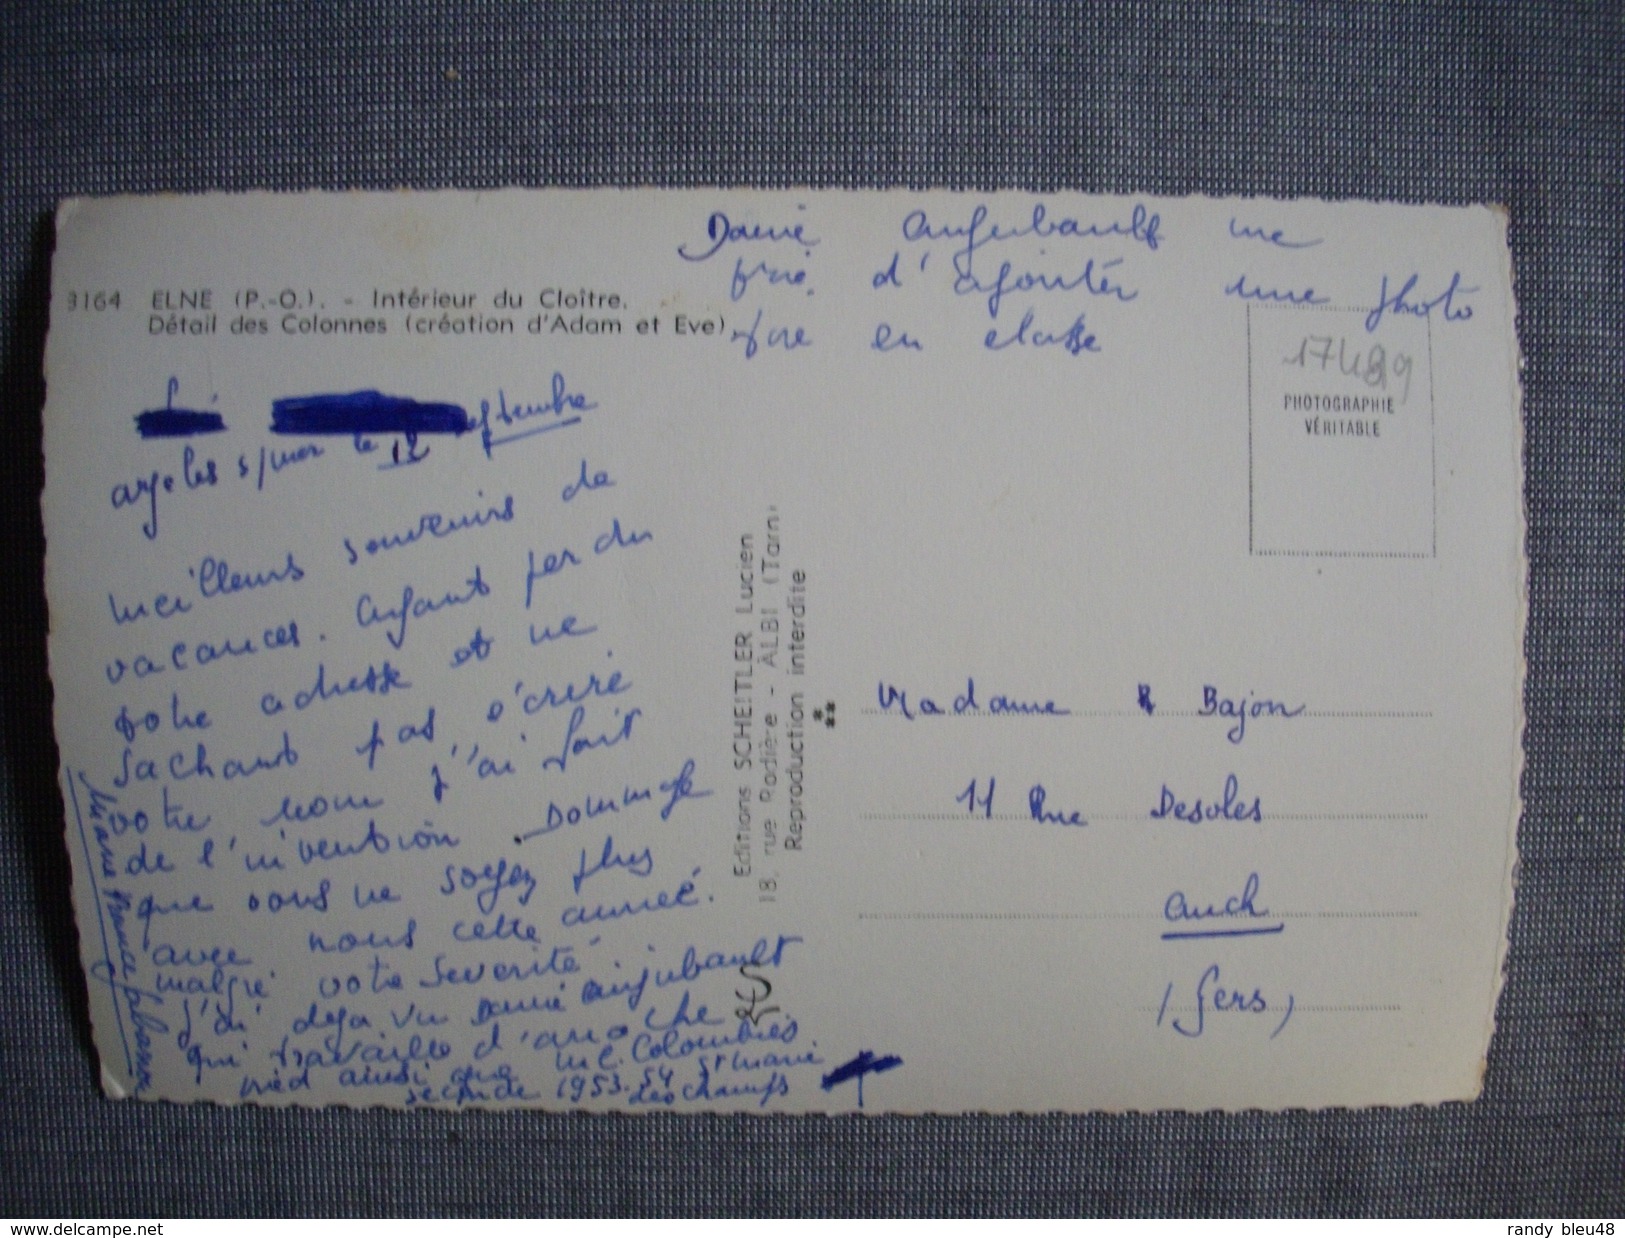 3164 ELNE (P.-O.). - Intérieur du Cloître.
Détail des Colonnes (création d'Adam et Eve)
anjubault me
prie d'ajouter une photo
en classe
17489
PHOTOGRAPHIE
VÉRITABLE
septembre
argeles s/mer le 12
meilleurs souvenirs de
vacances. ayant perdu
votre adresse et ne
sachant pas écrire
votre nom j'ai fait
de l'invention. Dommage
que vous ne soyez plus
avec nous cette année.
malgré votre severité
j'ai deja vu anjubault
qui travaille d'arrache
pied ainsi que Colombiès
seconde 1953-54 St marie
des champs
Editions SCHEITLER Lucien
18, rue Rodière - ALBI (Tarn)
Reproduction interdite
Madame Bajon
11 Rue Desoles
auch
(Gers)
www.delcampe.net
randy_bleu48